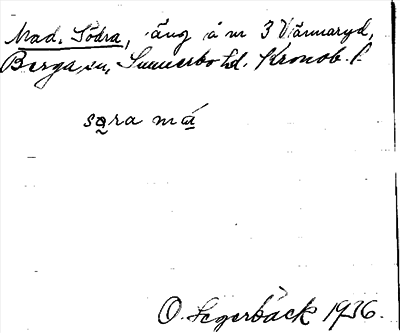 Mad, Södra, äng å m 3 Vännaryd,
Berga sn, Sunnerbo hd. Kronob. l.
sǫra má
O. Segerbäck 1936.